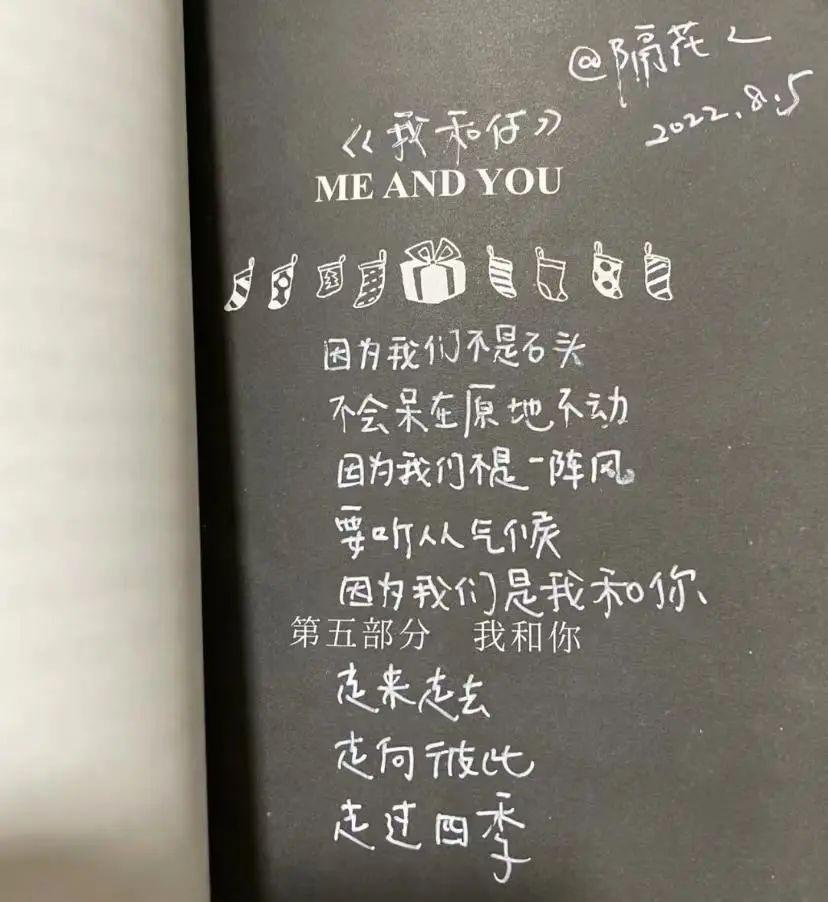 @隔花人
2022.8.5
《我和你》
ME AND YOU
因为我们不是石头
不会呆在原地不动
因为我们不是一阵风
要听从气候
因为我们是我和你、
第五部分 我和你
走来走去
走向彼此
走过四季